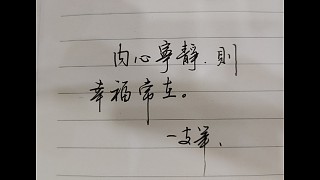 内心寧靜.則
幸福常在。
一支笔.